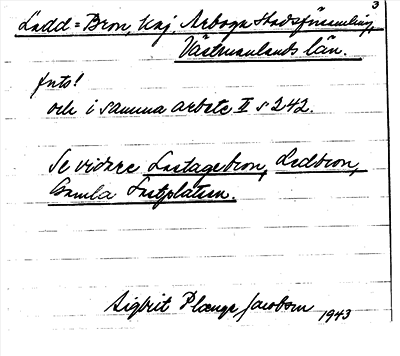 3
Ladd=Bron, Kaj, Arboga Stadsförsamling,
Västmanlands län.
foto!
och i samma arbete II s 242.
Se vidare Lastagebron, Ledbron,
Gamla Lastplatsen.
Sigbrit Plænge Jacobson 1943